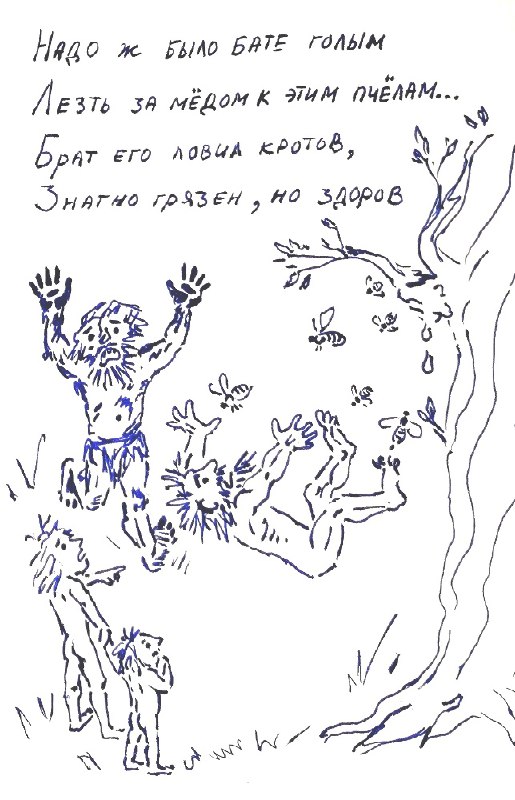 Надо ж было бате голым
Лезть за мёдом к этим пчёлам...
Брат его ловил кротов,
Знатно грязен, но здоров